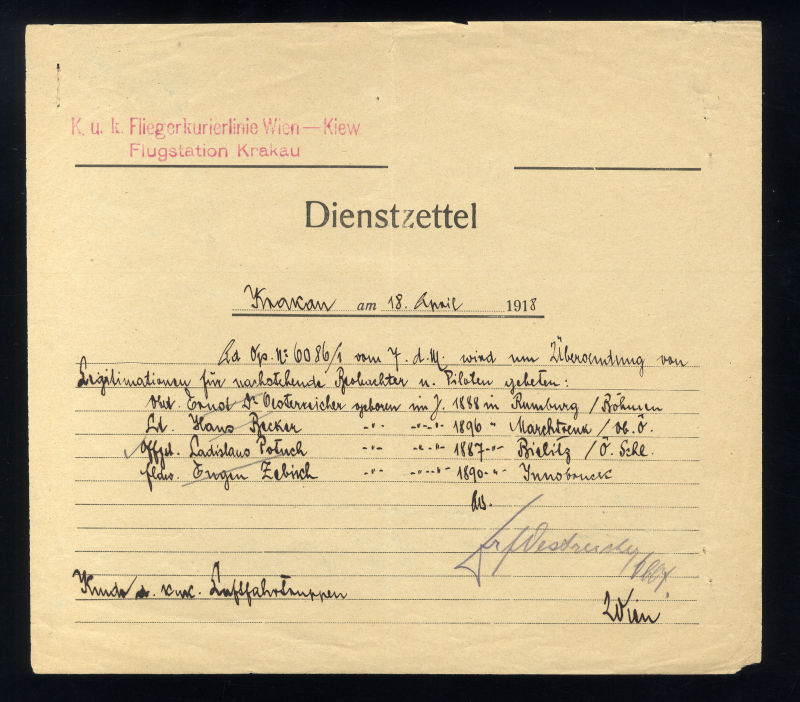 K. u. k. Fliegerkurierlinie Wien — Kiew
Flugstation Krakau
Dienstzettel
Krakau am 18. April 1918
Ad Op. Nr 6086/1 vom 7. d. M. wird um Übersendung von
Legitimationen für nachstehende Beobachter u. Piloten gebeten:
Oblt. Ernst Dr Oesterreicher geboren im J. 1888 in Rumburg / Böhmen
Lt. Hans Becker -"- -"-"- 1896 " Marchtrenk / Ob. Ö.
Offzst. Ladislaus Potuch -"- -"-"- 1887 -"- Bielitz / Ö. Schl.
fldw. Eugen Zebisch -"- -"-"- 1890 -"- Innsbruck
Oblt.
Kmdo d. k.u.k. Luftfahrtruppen
Wien